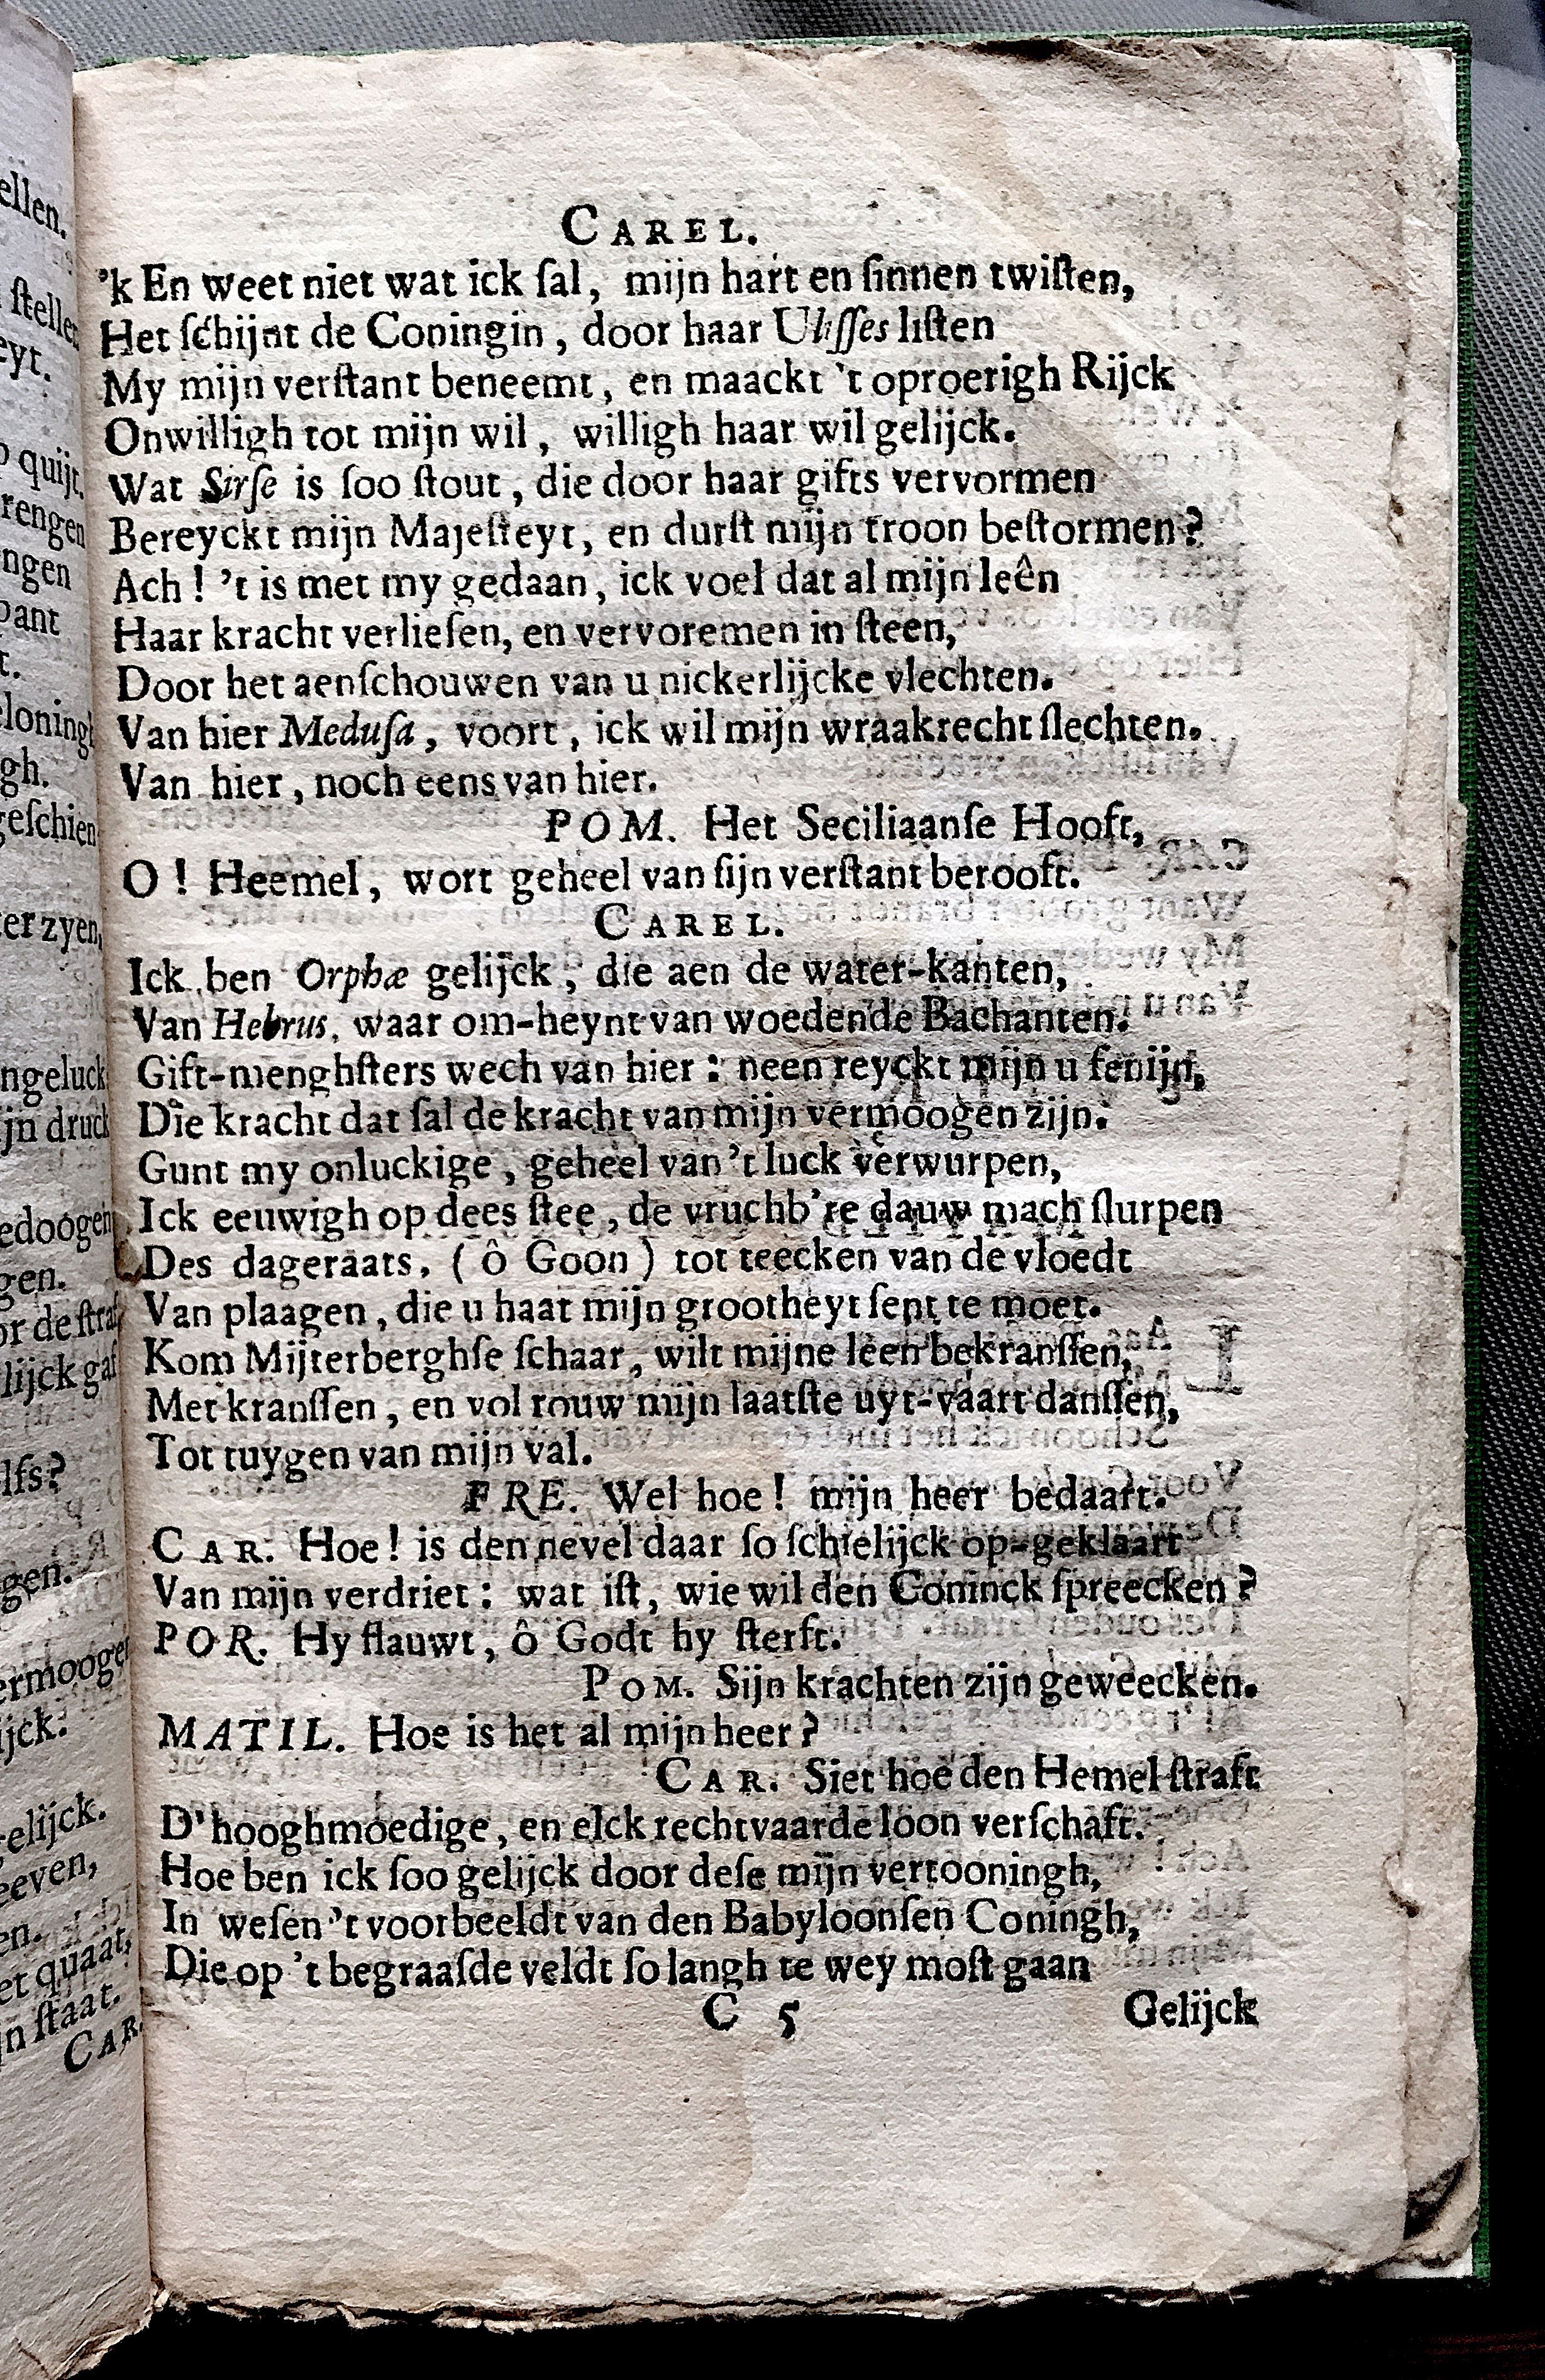 CAREL.
'k En weet niet wat ick ſal, mijn hart en ſinnen twiſten,
Het ſchijnt de Coningin, door haar Uliſſes liſten
My mijn verſtant beneemt, en maackt 't oproerigh Rijck
Onwilligh tot mijn wil, willigh haar wil gelijck.
Wat Sirſe is ſoo ſtout, die door haar gifts vervormen
Bereyckt mijn Majeſteyt, en durſt mijn troon beſtormen?
Ach! 't is met my gedaan, ick voel dat al mijn leên
Haar kracht verlieſen, en vervoremen in ſteen,
Door het aenſchouwen van u nickerlijcke vlechten.
Van hier Meduſa, voort, ick wil mijn wraakrecht ſlechten.
Van hier, noch eens van hier.
POM. Het Seciliaanſe Hooft,
O! Heemel, wort geheel van ſijn verſtant berooft.
CAREL.
Ick ben Orphæ gelijck, die aen de water-kanten,
Van Hebrus, waar om-heynt van woedende Bachanten.
Gift-menghſters wech van hier: neen reyckt mijn u fenijn,
Die kracht dat ſal de kracht van mijn vermoogen zijn.
Gunt my onluckige, geheel van 't luck verwurpen,
Ick eeuwigh op dees ſtee, de vruchb're dauw mach ſlurpen
Des dageraats, (ô Goon) tot teecken van de vloedt
Van plaagen, die u haat mijn grootheyt ſent te moet.
Kom Mijterberghſe ſchaar, wilt mijne leen bekranſſen,
Met kranſſen, en vol rouw mijn laatſte uyt-vaart danſſen,
Tot tuygen van mijn val.
FRE. Wel hoe! mijn heer bedaart.
CAR. Hoe! is den nevel daar ſo ſchielijck op-geklaart
Van mijn verdriet: wat iſt, wie wil den Coninck ſpreecken?
POR. Hy flauwt, ô Godt hy ſterft.
POM. Sijn krachten zijn geweecken.
MATIL. Hoe is het al mijn heer?
CAR. Siet hoe den Hemel ſtraft
D'hooghmoedige, en elck rechtvaarde loon verſchaft.
Hoe ben ick ſoo gelijck door deſe mijn vertooningh,
In weſen 't voorbeeldt van den Babyloonſen Coningh,
Die op 't begraaſde veldt ſo langh te wey moſt gaan
C 5 Gelijck